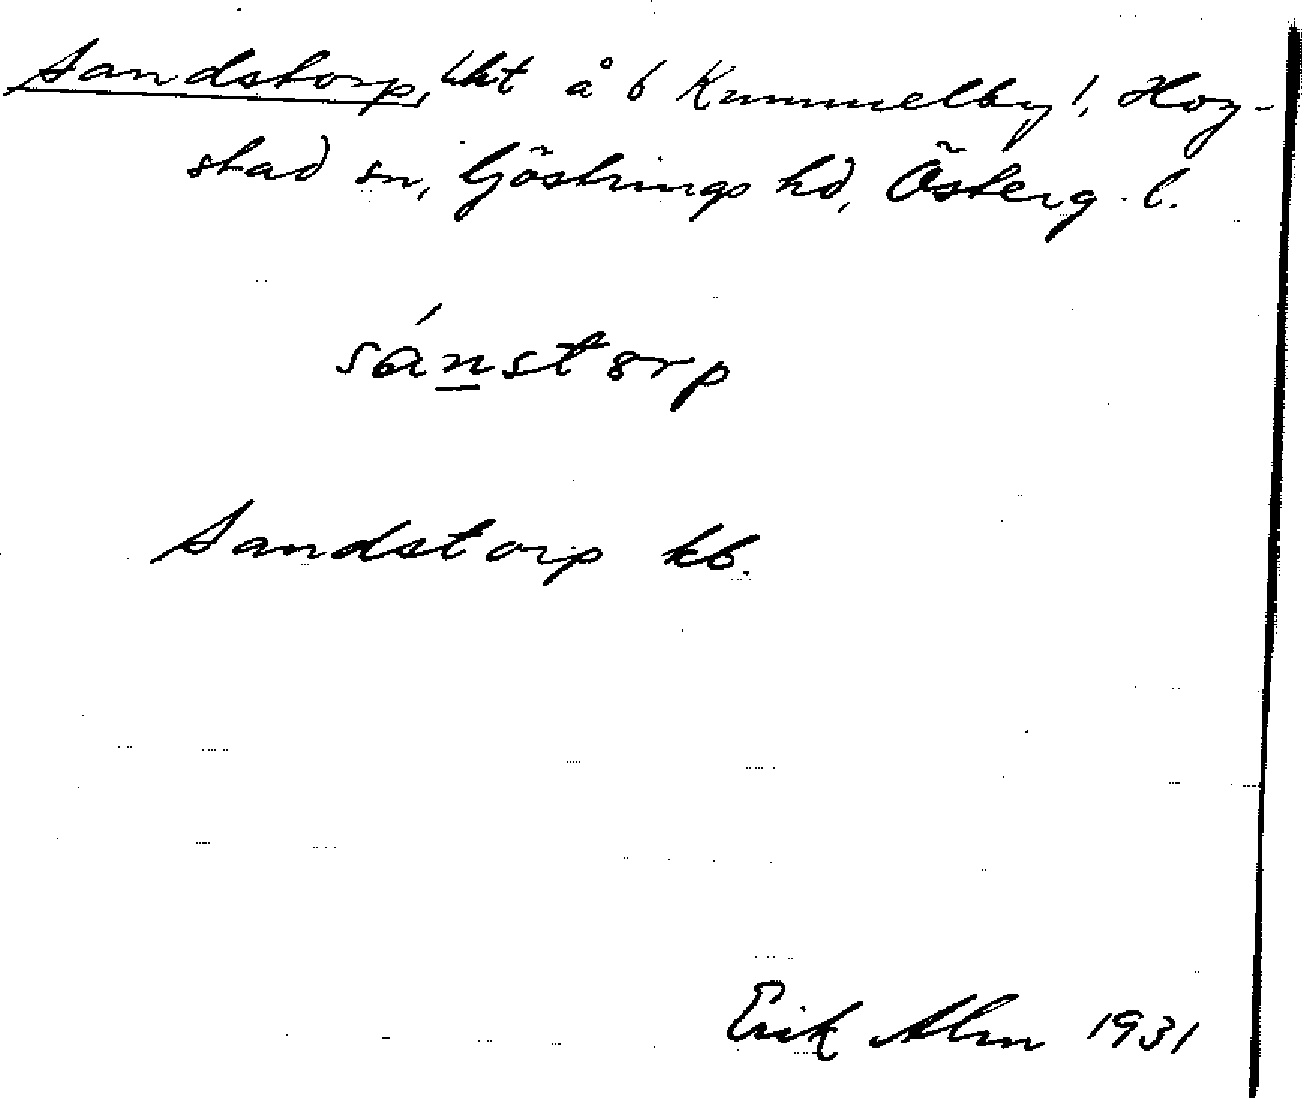 Sandstorp, lht å 6 Kummelby !, Hog-
stad sn, Göstrings hd, Österg. l.
sánstorp
Sandstorp kb.
Erik Alm 1931